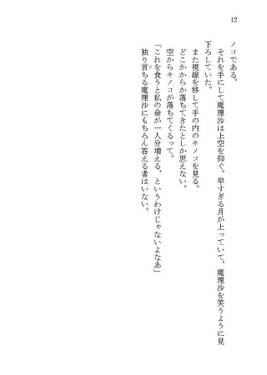 12
ノコである。
　それを手にして魔理沙は上空を仰ぐ。早すぎる月が上っていて、魔理沙を笑うように見
下ろしていた。
　また視線を移して手の内のキノコを見る。
　どこかからか落ちてきたとしか思えない。
　空からキノコが落ちてくるって。
「これを食うと私の命が一人分増える、というわけじゃないよなあ」
　独り言ちる魔理沙にもちろん答える者はいない。